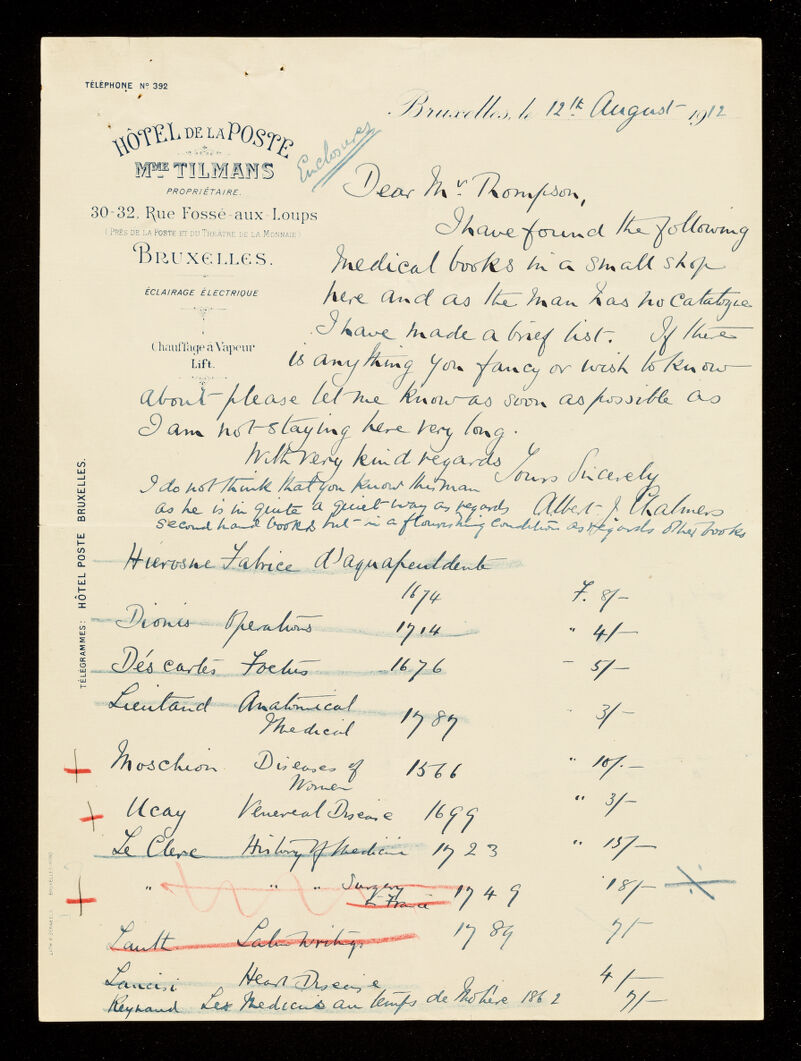 TÉLÉPHONE Nº 392
HÔTEL DE LA POSTE
MME TILMANS
PROPRIÉTAIRE.
30-32, Rue Fossé-aux-Loups
(PRÈS DE LA POSTE ET DU THÉATRE DE LA MONNAIE)
BRUXELLES.
ÉCLAIRAGE ÉLECTRIQUE
Chauffage à Vapeur
Lift.
TÉLÉGRAMMES: HÔTEL POSTE BRUXELLES.
Enclosures
Bruxelles, le 12th August 1912
Dear Mr. Thompson,
I have found the following
medical books in a small shop
here and as the man has no catalogue
I have made a brief list. If there
is anything you fancy or wish to know
about please let me know as soon as possible as
I am not staying here very long.
With very kind regards
Yours Sincerely
Albert J. Chalmers
I do not think that you know this man
as he is in quite a quiet way as regards
second hand books but in a flourishing condition as regards other books
Hierosme Fabrice d'aquapendente
1674 F. 8/-
Dionis Operations 1714 " 4/-
Déscartes Foetus 1676 - 5/-
Lieutaud Anatomical
Medical 1787 " 3/-
Moschion Diseases of
Women 1566 " 10/-
Ucay Venereal Disease 1699 " 3/-
Le Clerc History of Medicine 1723 " 15/-
" " " Surgery
in France 1749 " 18/-
Lauth Latin Writings 1789 7/-
Lancisi Heart Disease 4/-
Reynaud Les Medecins au temps de Moliere 1862 7/-